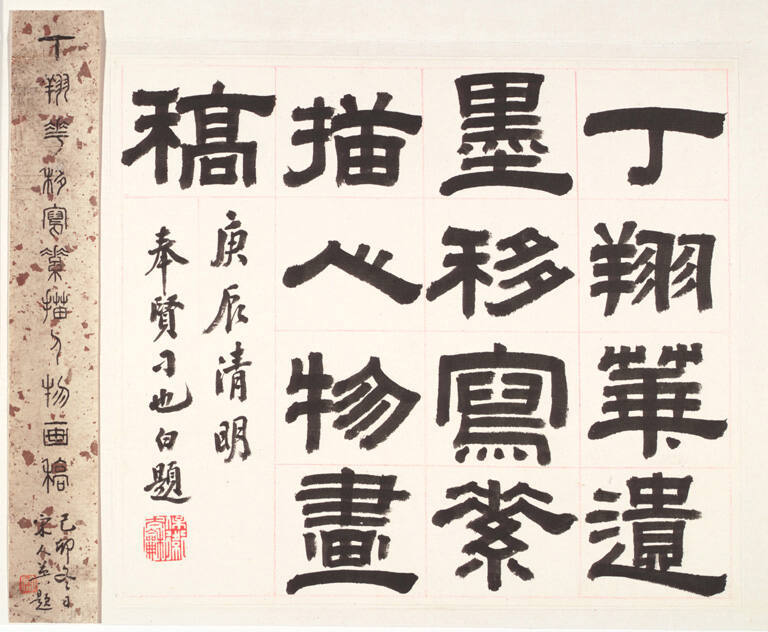 丁翔華遺
墨移寫素
描人物畫
稿
庚辰清明
奉賢刁也白題
丁翔華移寫素描人物画稿
己卯冬日
宋題